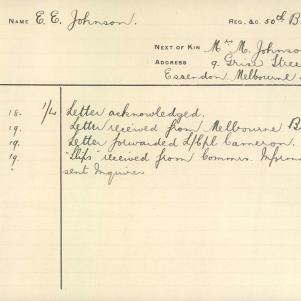 NAME E. E. Johnson. REG. &C. 50th B
NEXT OF KIN Mrs M. Johnson
ADDRESS 9. Stree
Essendon, Melbourne
18. 1/4 Letter acknowledged.
19. Letter received from Melbourne B
19. Letter forwarded L/Cpl Cameron.
19 "Slips" received from Commrs. Informa
" sent Inquirer